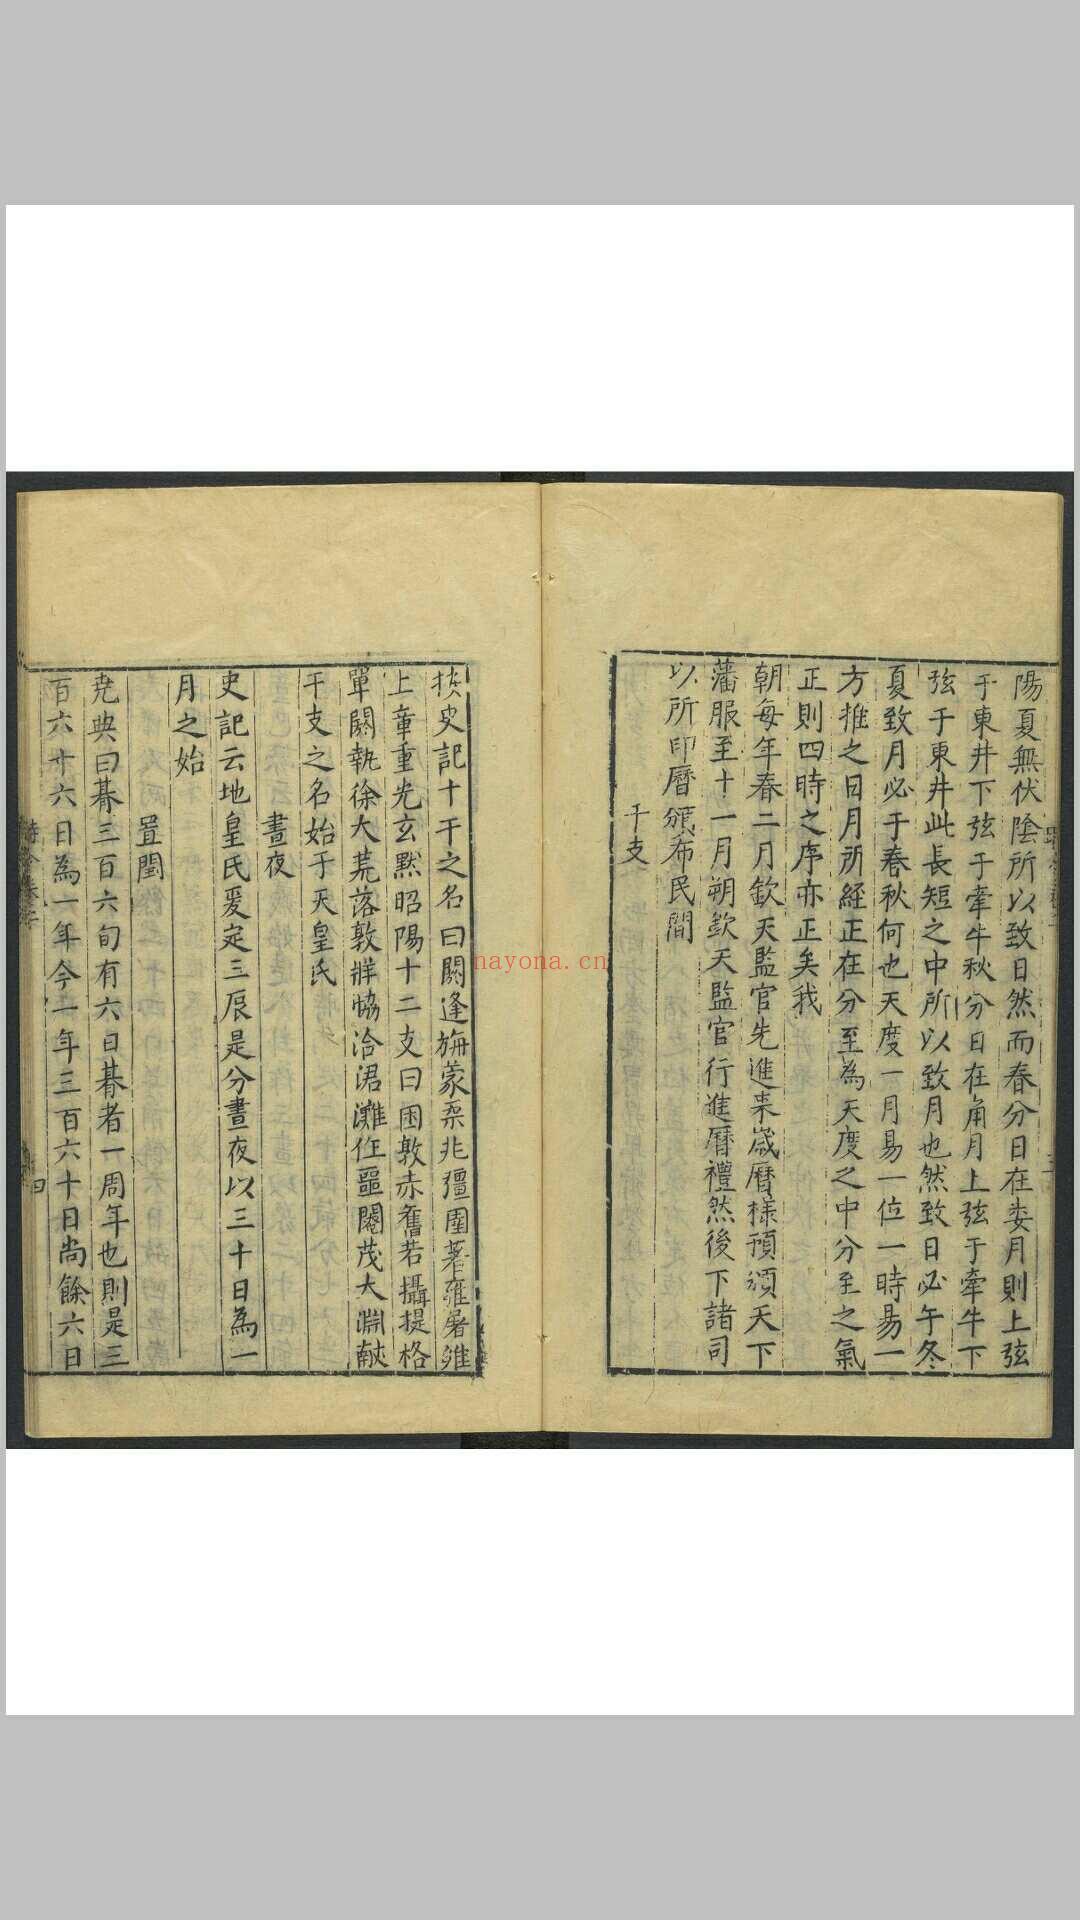 陽夏無伏陰所以致日然而春分日在婁月則上弦
于東井下弦于牽牛秋分日在角月上弦于牽牛下
弦于東井此長短之中所以致月也然致日必午冬
夏致月必于春秋何也天度一月易一位一時易一
方推之日月所經正在分至為天度之中分至之氣
正則四時之序亦正矣我
朝每年春二月欽天監官先進來歲曆樣預頒天下
藩服至十一月朔欽天監官行進曆禮然後下諸司
以所印曆頒布民間
干支
按史記十干之名曰閼逢旃蒙柔兆彊圉著雍屠維
上章重光玄黙昭陽十二支曰困敦赤奮若攝提格
單閼執徐大荒落敦牂協洽涒灘作噩閹茂大淵獻
干支之名始于天皇氏
晝夜
史記云地皇氏爰定三辰是分晝夜以三十日為一
月之始
置閏
堯典曰朞三百六旬有六日朞者一周年也則是三
百六十六日為一年今一年三百六十日尚餘六日
四
nayona.cn